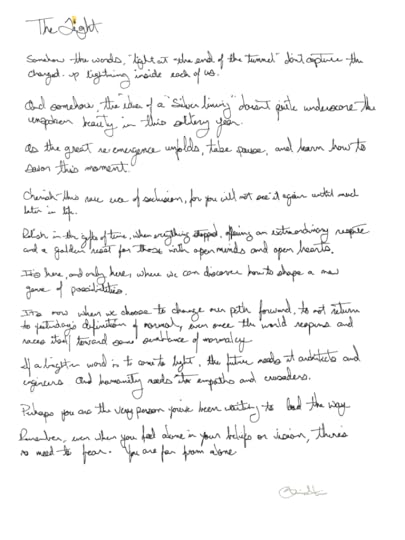 The Light
Somehow the words, "light at the end of the tunnel" don't capture the
charged-up lightning inside each of us.
And somehow, the idea of a "Silver lining" doesn't quite underscore the
unspoken beauty in this solitary year.
As the great re-emergence unfolds, take pause, and learn how to
savor this moment.
Cherish this rare era of seclusion, for you will not see it again until much
later in life.
Relish in the gifts of time, when everything stopped, offering an extraordinary respite
and a golden reset for those with open minds and open hearts.
It is here, and only here, where we can discover how to shape a new
genre of possibilities.
It is now when we choose to change our path forward, to not return
to yesterday's definition of normal, even once the world reopens and
races itself toward some semblance of normalcy.
If a brighter world is to come to light, the future needs its architects and
engineers and humanity needs its empaths and crusaders.
Perhaps you are the very person you've been waiting to lead the way
Remember, even when you feel alone in your beliefs or vision, there's
no need to fear. You are far from alone